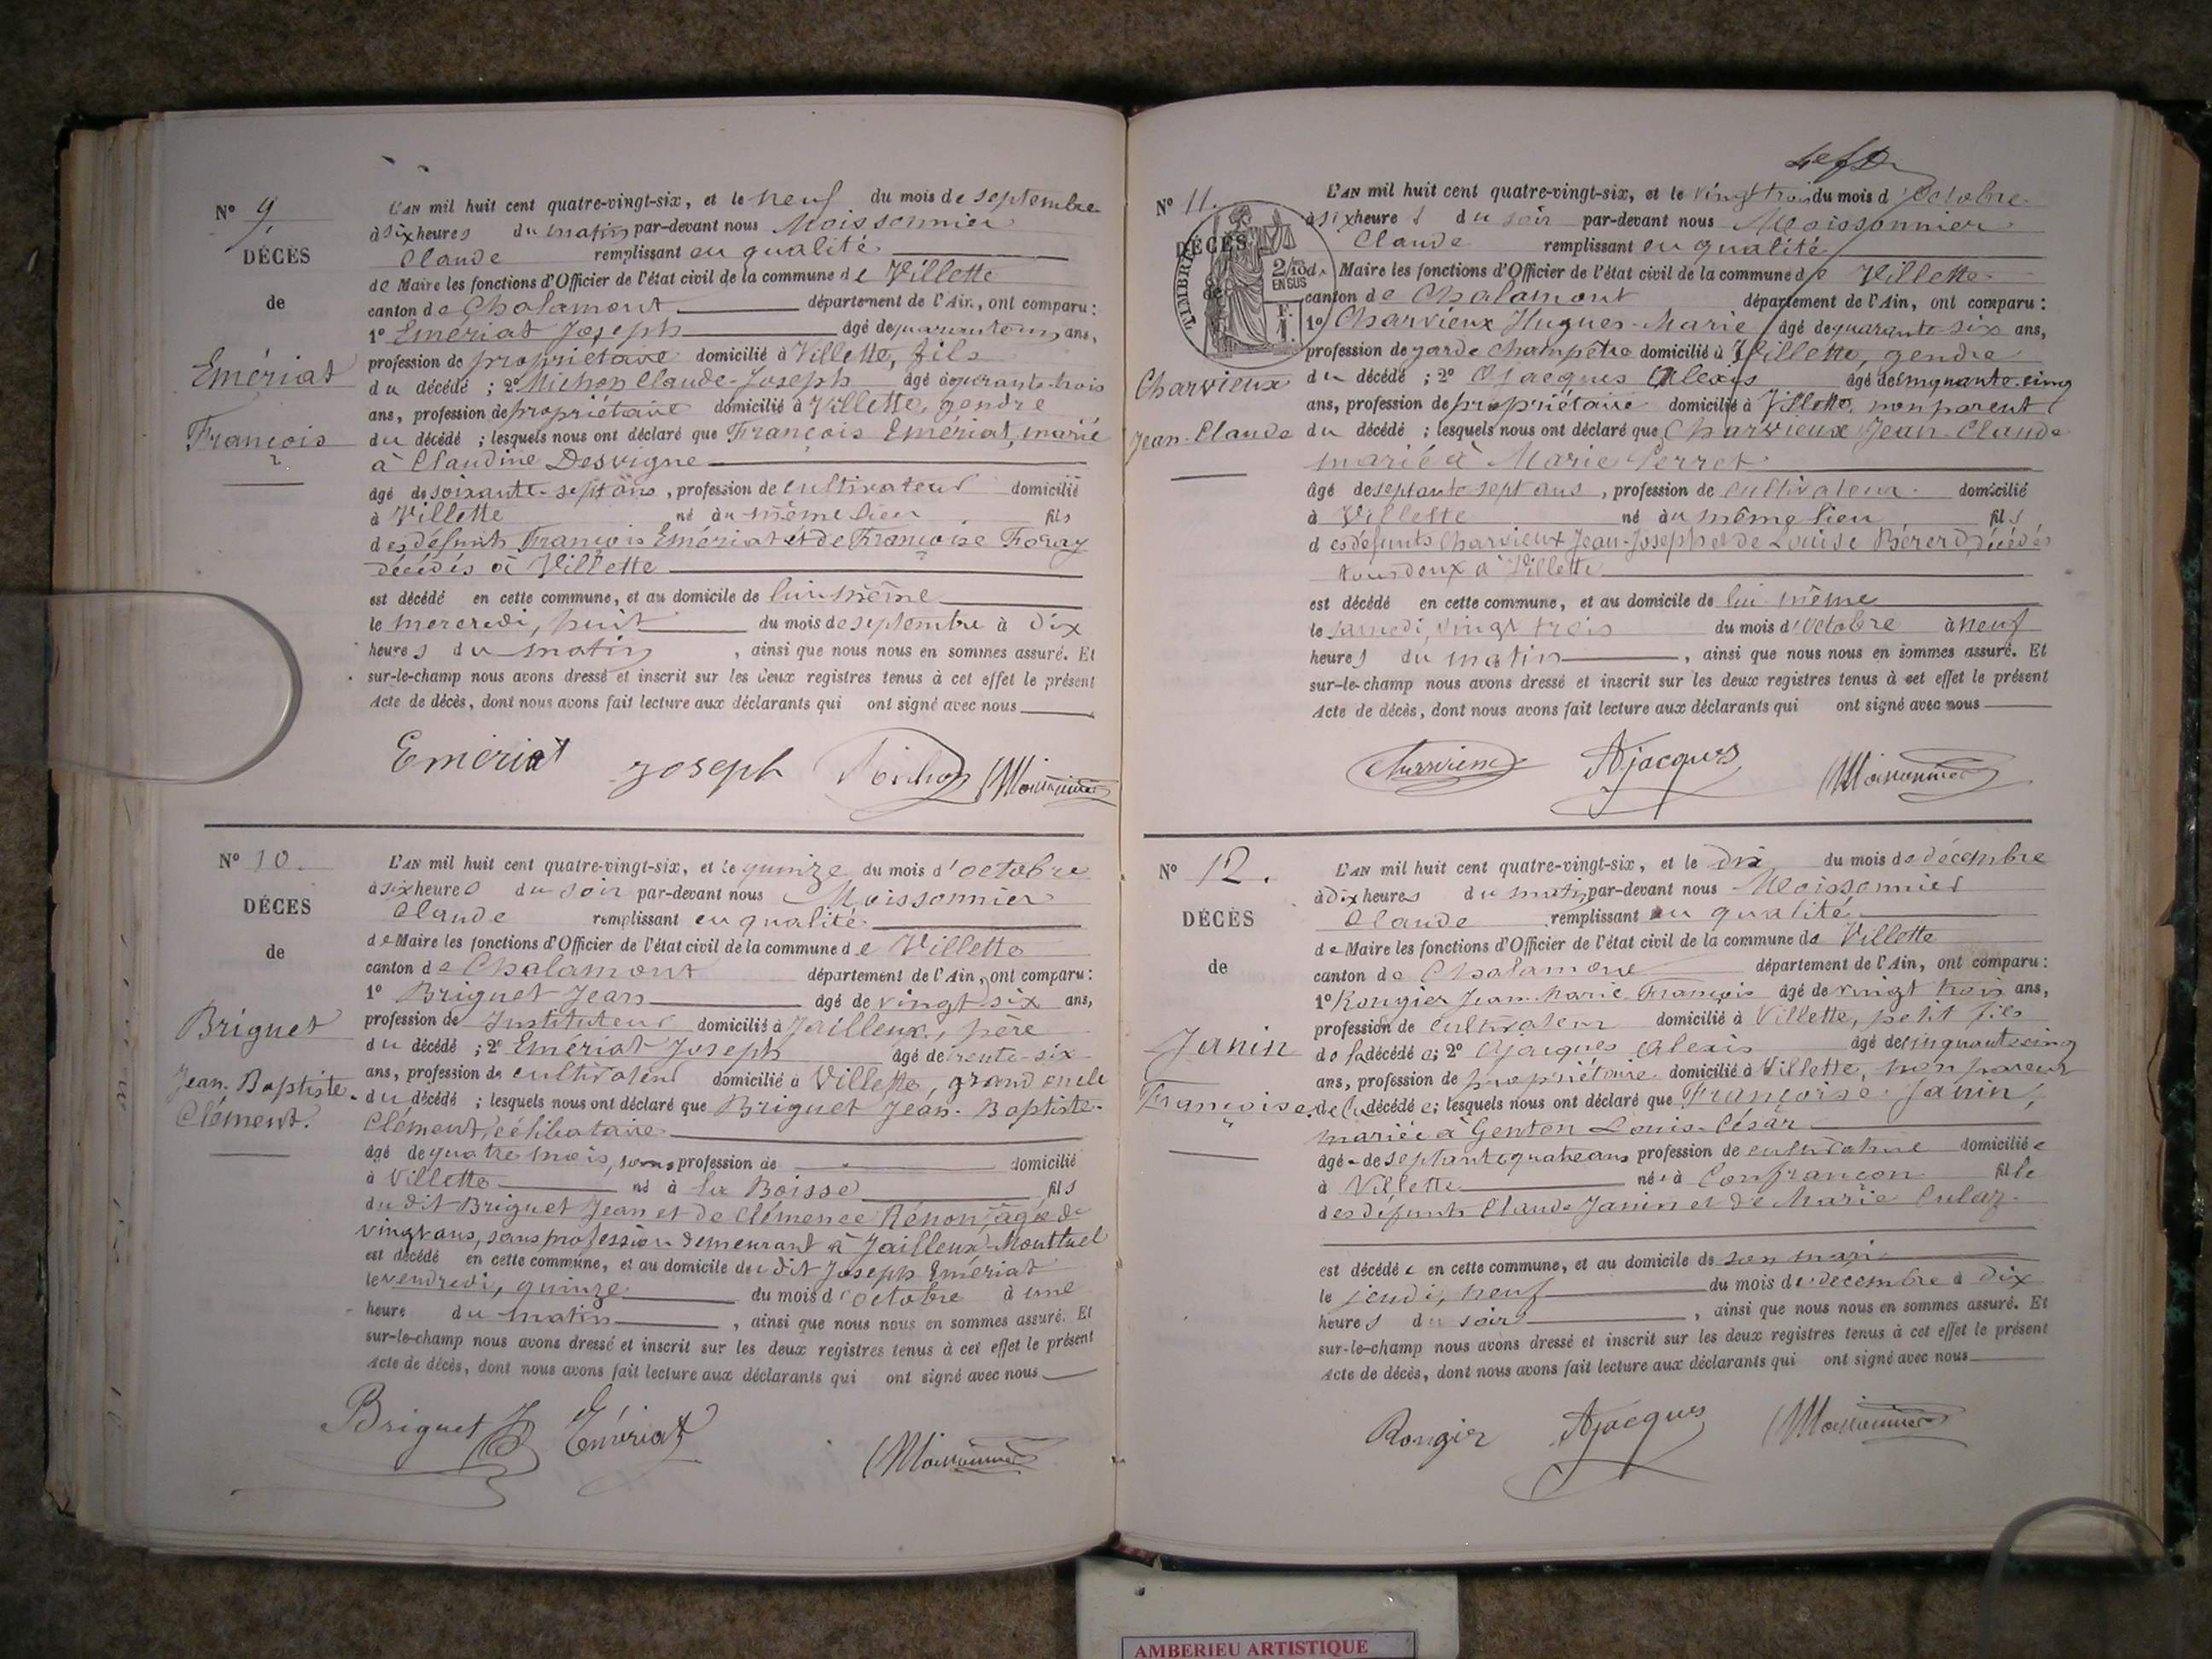 Nº 9.
DÉCÈS
de
Emériat
François
L'AN mil huit cent quatre-vingt-six, et le neuf du mois de septembre
à six heures du matin par-devant nous Moissonnier
Claude remplissant en qualité
de Maire les fonctions d'Officier de l'état civil de la commune de Villette
canton de Chalamont département de l'Ain, ont comparu:
1º Emériat Joseph âgé de ans,
profession de propriétaire domicilié à Villette, fils
du décédé ; 2º Michon Claude-Joseph âgé de quarante-trois
ans, profession de propriétaire domicilié à Villette, gendre
du décédé ; lesquels nous ont déclaré que François Emériat, marié
à Claudine Desvigne
âgé de soixante-sept ans, profession de cultivateur domicilié
à Villette né au même lieu fils
des défunts François Emériat et de Françoise Foray
décédés à Villette
est décédé en cette commune, et au domicile de lui-même
le mercredi, huit du mois de septembre à dix
heures du matin, ainsi que nous nous en sommes assuré. Et
sur-le-champ nous avons dressé et inscrit sur les deux registres tenus à cet effet le présent
Acte de décès, dont nous avons fait lecture aux déclarants qui ont signé avec nous
Emériat joseph Moissonnier
Nº 10.
DÉCES
de
Briguet
Jean-Baptiste-
Clément.
L'AN mil huit cent quatre-vingt-six, et le quinze du mois d'octobre
à six heures du soir par-devant nous Moissonnier
Claude remplissant en qualité
de Maire les fonctions d'Officier de l'état civil de la commune de Villette
canton de Chalamont département de l'Ain, ont comparu:
1º Briguet Jean âgé de vingt-six ans,
profession de Instituteur domicilié à Jailleux, père
du décédé ; 2º Emériat Joseph âgé de trente-six
ans, profession de cultivateur domicilié à Villette, grand oncle
du décédé ; lesquels nous ont déclaré que Briguet Jean-Baptiste-
Clément, célibataire
âgé de quatre mois, sans profession de domicilié
à Villette né à la Boisse fils
du dit Briguet Jean et de Clémence Rénon, âgée de
vingt ans, sans profession demeurant à Jailleux-Montluel
est décédé en cette commune, et au domicile du dit Joseph Emériat
le vendredi, quinze du mois d'octobre à une
heure du matin, ainsi que nous nous en sommes assuré. Et
sur-le-champ nous avons dressé et inscrit sur les deux registres tenus à cet effet le présent
Acte de décès, dont nous avons fait lecture aux déclarants qui ont signé avec nous
Briguet J Emériat Moissonnier
Nº 11.
DÉCÈS
de
TIMBRE
2/10 d.
EN SUS
F.
1.
Charvieux
Jean-Claude
L'AN mil huit cent quatre-vingt-six, et le vingt trois du mois d'Octobre
à six heures du soir par-devant nous Moissonnier
Claude remplissant en qualité
Maire les fonctions d'Officier de l'état civil de la commune de Villette
canton de Chalamont département de l'Ain, ont comparu:
1º Charvieux Hugues-Marie âgé de quarante-six ans,
profession de garde champêtre domicilié à Villette, gendre
du décédé ; 2º Ajacques Alexis âgé de cinquante-cinq
ans, profession de propriétaire domicilié à Villette, non parent
du décédé ; lesquels nous ont déclaré que Charvieux Jean-Claude
marié à Marie Perret
âgé de septante sept ans, profession de cultivateur domicilié
à Villette né au même lieu fils
des défunts Charvieux Jean-Joseph et de Louise Bérerd, décédés
tous deux à Villette
est décédé en cette commune, et au domicile de lui-même
le samedi, vingt trois du mois d'octobre à neuf
heures du matin, ainsi que nous nous en sommes assuré. Et
sur-le-champ nous avons dressé et inscrit sur les deux registres tenus à cet effet le présent
Acte de décès, dont nous avons fait lecture aux déclarants qui ont signé avec nous
Charvieux Ajacques Moissonnier
Nº 12.
DÉCÈS
de
Janin
Françoise
L'AN mil huit cent quatre-vingt-six, et le dix du mois de décembre
à dix heures du matin par-devant nous Moissonnier
Claude remplissant en qualité
de Maire les fonctions d'Officier de l'état civil de la commune de Villette
canton de Chalamont département de l'Ain, ont comparu:
1º Rougier Jean-Marie François âgé de vingt trois ans,
profession de cultivateur domicilié à Villette, petit fils
de la décédée; 2º Ajacques Alexis âgé de cinquante cinq
ans, profession de propriétaire domicilié à Villette, non parent
de la décédée; lesquels nous ont déclaré que Françoise Janin,
mariée à Genton Louis-César
âgée de septante quatre ans profession de cultivatrice domiciliée
à Villette née à Confrançon fille
des défunts Claude Janin et de Marie Culaz
est décédée en cette commune, et au domicile de son mari
le jeudi, neuf du mois de décembre à dix
heures du soir, ainsi que nous nous en sommes assuré. Et
sur-le-champ nous avons dressé et inscrit sur les deux registres tenus à cet effet le présent
Acte de décès, dont nous avons fait lecture aux déclarants qui ont signé avec nous
Rougier Ajacques Moissonnier
AMBERIEU ARTISTIQUE